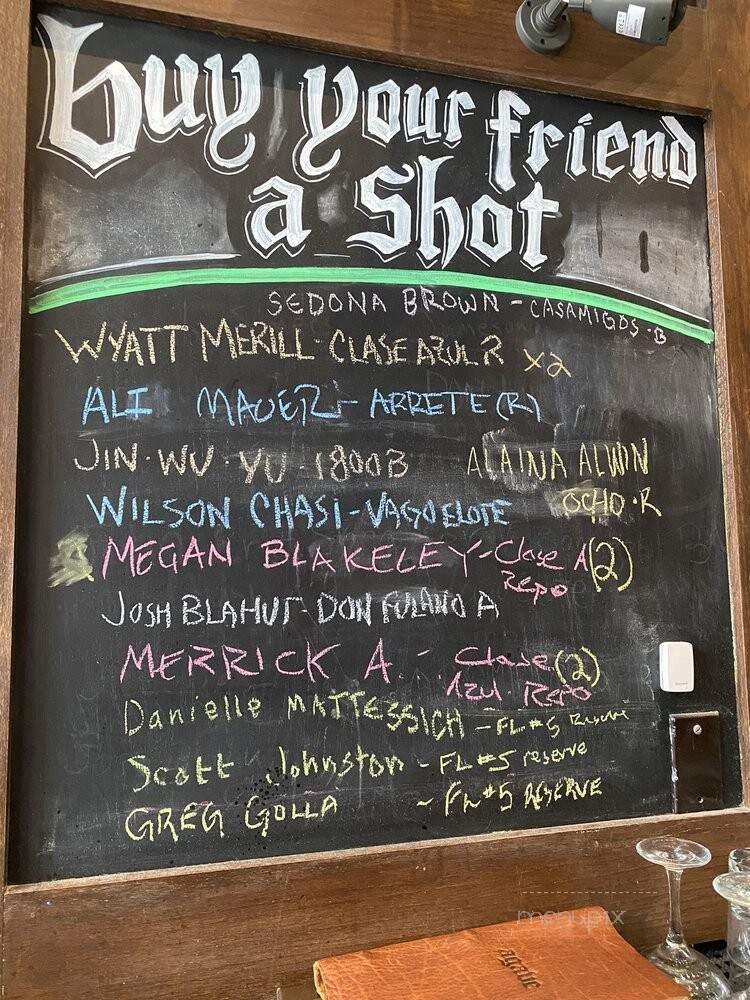 buy your friend
a Shot
SEDONA BROWN - CASAMIGOS - B
WYATT MERILL - CLASE AZUL R x2
ALI MAUER - ARRETE (R)
JIN - WU - YU - 1800 B
ALAINA ALWIN
OCHO · R
WILSON CHASI - VAGO ELOTE
MEGAN BLAKELEY - Clase A (2)
Repo
JOSH BLAHUT - DON FULANO A
MERRICK A. - Clase (2)
Azul · Repo
Danielle MATTESSICH - FL #5 Reserve
Scott Johnston - FL #5 reserve
GREG GOLLA - FL #5 RESERVE
menupix
agave